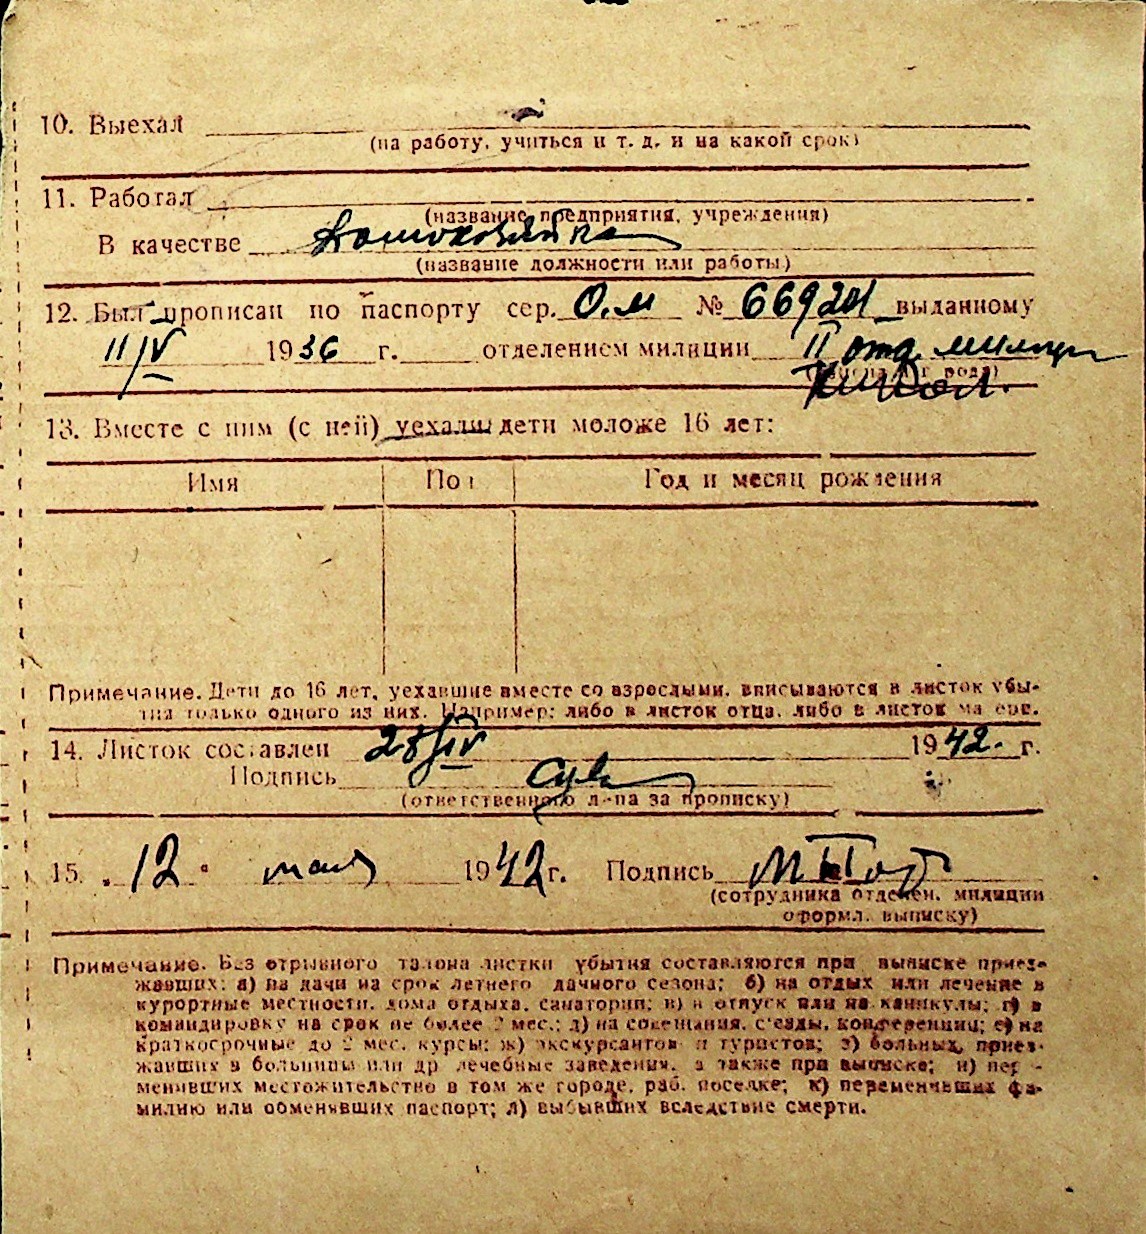 10. Выехал
(на работу, учиться и т. д. и на какой срок)
11. Работал
(название предприятия, учреждения)
В качестве Домохозяйка
(название должности или работы)
12. Был прописан по паспорту сер. О.М № 669201 выданному
11/IV 1936 г. отделением милиции II отд. милиции
13. Вместе с ним (с ней) уехали дети моложе 16 лет:
Имя Пол Год и месяц рождения
Примечание. Дети до 16 лет, уехавшие вместе со взрослыми, вписываются в листок убы-
тия только одного из них. Например: либо в листок отца, либо в листок матери.
14. Листок составлен 28/IV 1942 г.
Подпись
(ответственного лица за прописку)
15. "12" мая 1942 г. Подпись
(сотрудника отделен. милиции
оформл. выписку)
Примечание. Без отрывного талона листки убытия составляются при выписке приез-
жавших: а) на дачи на срок летнего дачного сезона; б) на отдых или лечение в
курортные местности, дома отдыха, санатории; в) в отпуск или на каникулы; г) в
командировку на срок не более 2 мес.; д) на совещания, с'езды, конференции; е) на
краткосрочные до 2 мес. курсы; ж) экскурсантов и туристов; з) больных, приез-
жавших в больницы или др лечебные заведения, а также при выписке; и) пере-
менивших местожительство в том же городе, раб. поселке; к) переменивших фа-
милию или обменявших паспорт; л) выбывших вследствие смерти.